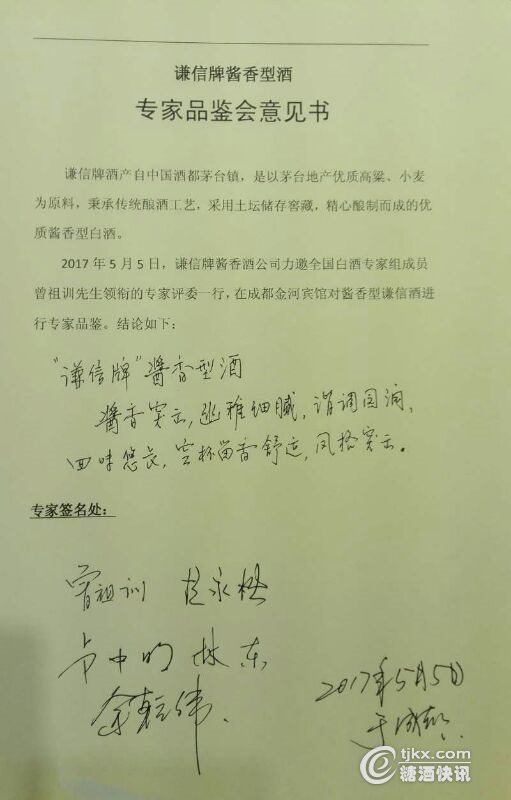 谦信牌酱香型酒
专家品鉴会意见书
谦信牌酒产自中国酒都茅台镇，是以茅台地产优质高粱、小麦
为原料，秉承传统酿酒工艺，采用土坛储存窖藏，精心酿制而成的优
质酱香型白酒。
2017年5月5日，谦信牌酱香酒公司力邀全国白酒专家组成员
曾祖训先生领衔的专家评委一行，在成都金河宾馆对酱香型谦信酒进
行专家品鉴。结论如下：
“谦信牌”酱香型酒
酱香突出，幽雅细腻，谐调圆润，
回味悠长，空杯留香舒适，风格突出。
专家签名处：
曾祖训
林东
2017年5月5日
tjkx.com
糖酒快讯